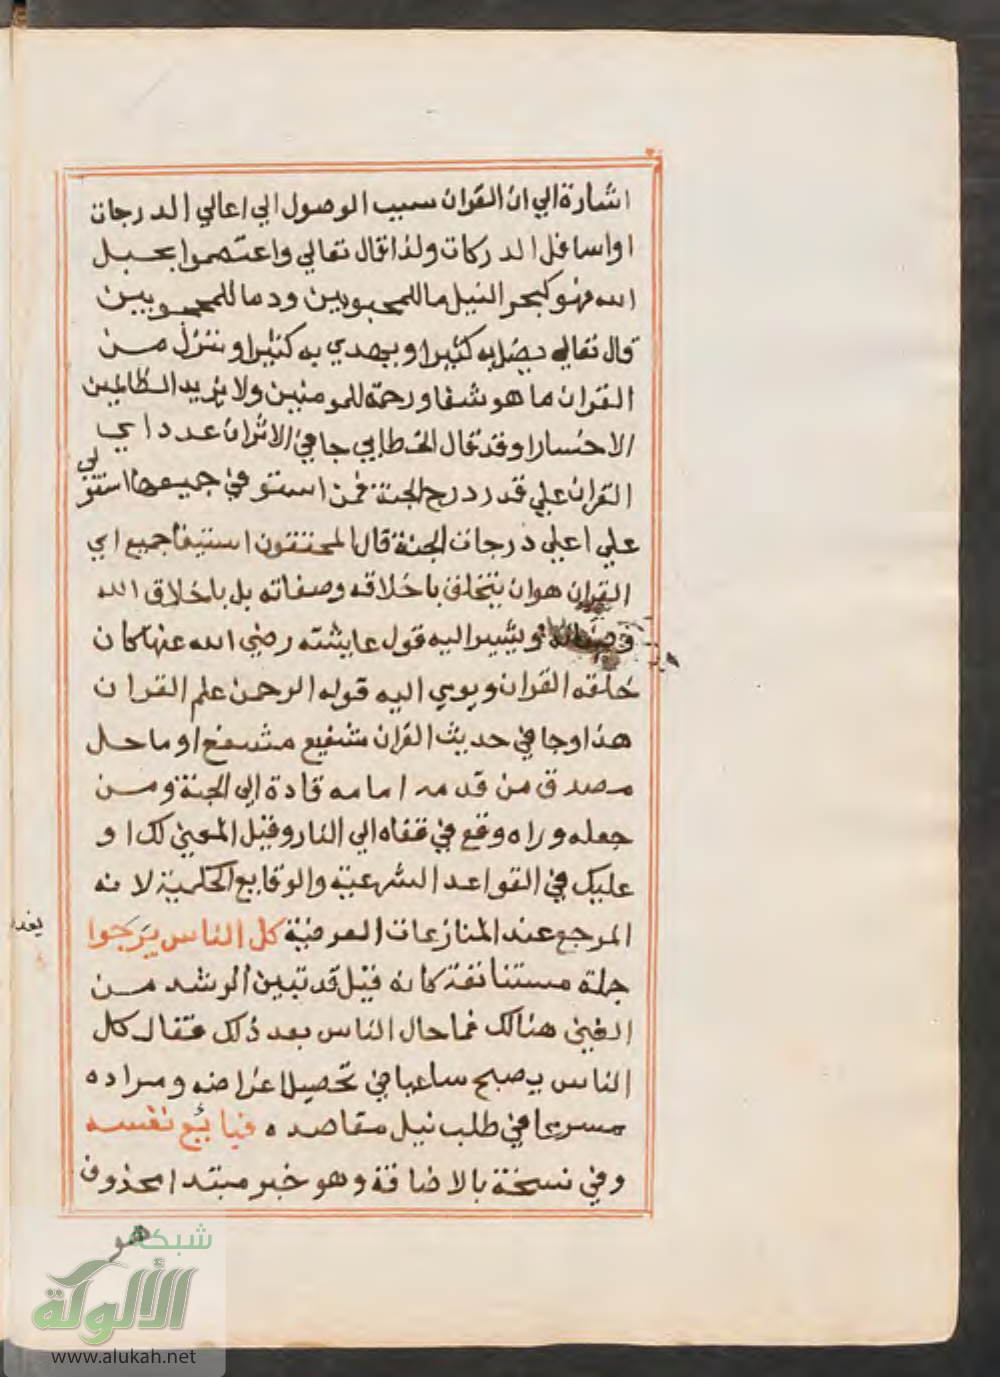 اشارة الي ان القران سبب الوصول الي اعالي الدرجات
او اسافل الدركات ولذا قال تعالي واعتصموا بحبل
الله فهو كبحر النيل ما للمحبوبين ودما للمحجوبين
قال تعالي يضل به كثيرا ويهدي به كثيرا وننزل من
القران ما هو شفا ورحمة للمومنين ولا يزيد الظالمين
الا خسارا وقد قال الخطابي جا في الاثر ان عدد اي
القران علي قدر درج الجنة فمن استوفي جميعها استولي
علي اعلي درجات الجنة قال المحققون استيفا جميع اي
القران هو ان يتخلق باخلاقه وصفاته بل باخلاق الله
ويشير اليه قول عايشة رضي الله عنها كان
خلقه القران ويومي اليه قوله الرحمن علم القران
هذا وجا في حديث القران شفيع مشفع او ماحل
مصدق من قدمه امامه قاده الي الجنة ومن
جعله وراه وقع في قفاه الي النار وقيل المعني لك او
عليك في القواعد الشرعية والوقايع الحكمية لانه
المرجع عند المنازعات العرضية كل الناس يرجوا
يغدو
جملة مستانفة كانه قيل قد تبين الرشد من
الغي هنالك فما حال الناس بعد ذلك فقال كل
الناس يصبح ساعيا في تحصيل اعراضه ومراده
مسرعا في طلب نيل مقاصده فبائع نفسه
وفي نسخة بالاضافة وهو خبر مبتدا محذوف
هو
شبكة
الألوكة
www.alukah.net